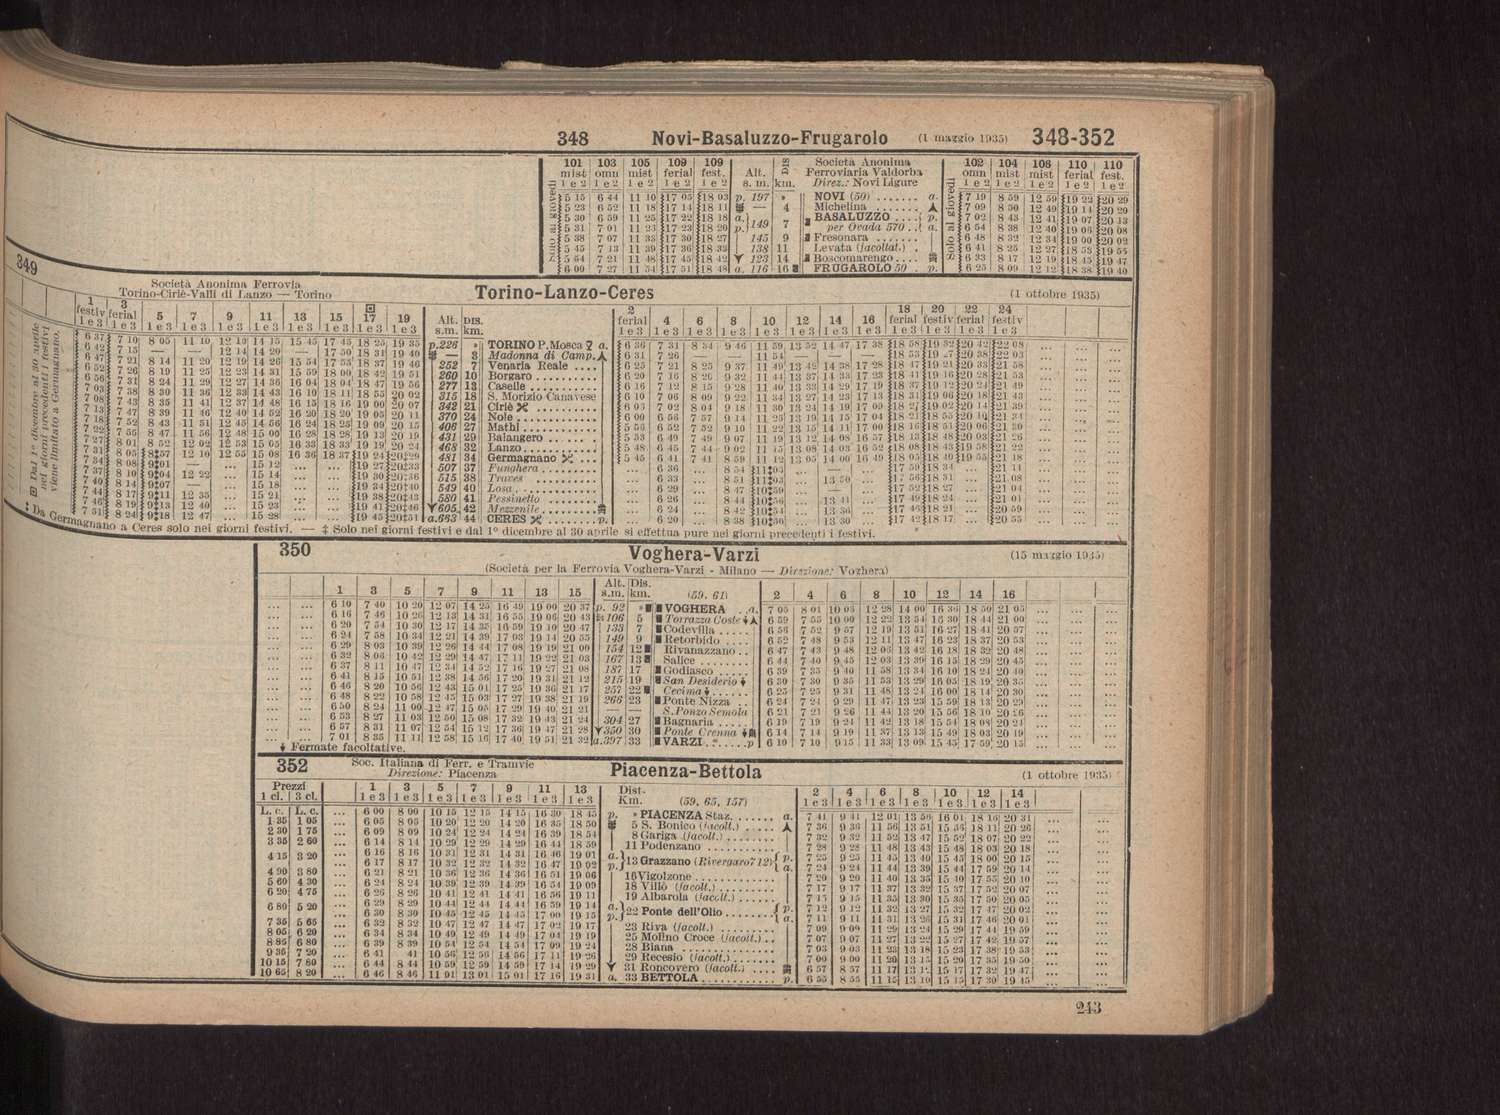 348 Novi-Basaluzzo-Frugarolo (1 maggio 1935) 348-352
101 103 105 109 109 102 104 108 110 110
mist omn mist ferial fest. Alt. DIS Società Anonima omn mist mist ferial fest.
1 e 2 1 e 2 1 e 2 1 e 2 1 e 2 s. m. km. Ferroviaria Valdorba 1 e 2 1 e 2 1 e 2 1 e 2 1 e 2
Direz.: Novi Ligure
Solo al giovedì
5 15 6 44 11 10 17 05 18 03 p. 197 » NOVI (50) a. 7 19 8 59 12 59 19 22 20 29
5 23 6 52 11 18 17 14 18 11 — 4 Michelina 7 09 8 50 12 49 19 14 20 20
5 30 6 59 11 25 17 22 18 18 a. 149 7 BASALUZZO p. 7 02 8 43 12 41 19 07 20 13
5 31 7 01 11 25 17 23 18 20 p. per Ovada 570 a. 6 54 8 38 12 40 19 06 20 08
5 38 7 07 11 33 17 30 18 27 145 9 Fresonara 6 48 8 32 12 34 19 00 20 02
5 45 7 13 11 39 17 36 18 33 138 11 Levata (facoltat.) 6 41 8 25 12 27 18 53 19 55
5 54 7 21 11 48 17 45 18 42 123 14 Boscomarengo 6 33 8 17 12 19 18 45 19 47
6 00 7 27 11 54 17 51 18 48 a. 116 16 FRUGAROLO 50 p. 6 25 8 09 12 12 18 38 19 40
Solo al giovedì
349 Società Anonima Ferrovia
Torino-Ciriè-Valli di Lanzo — Torino Torino-Lanzo-Ceres (1 ottobre 1935)
1 3 5 7 9 11 13 15 17 19 Alt. DIS. 2 4 6 8 10 12 14 16 18 20 22 24
festiv ferial s.m. km. ferial ferial festiv ferial festiv
1 e 3 1 e 3 1 e 3 1 e 3 1 e 3 1 e 3 1 e 3 1 e 3 1 e 3 1 e 3
Dal 1° dicembre al 30 aprile
nei giorni precedenti i festivi
viene limitato a Germagnano.
6 37 7 10 8 05 11 10 12 10 14 15 15 45 17 45 18 25 19 35 p.226 » TORINO P. Mosca a. 6 36 7 31 8 34 9 46 11 59 13 52 14 47 17 38 18 58 19 32 20 42 22 08
6 42 7 15 — — 12 14 14 20 — 17 50 18 31 19 40 — 3 Madonna di Camp. 6 31 7 26 11 54 18 53 20 38 22 03
6 47 7 21 8 14 11 20 12 19 14 26 15 54 17 55 18 37 19 46 252 7 Venaria Reale 6 25 7 21 8 25 9 37 11 49 13 42 14 38 17 28 18 47 19 21 20 33 21 58
6 52 7 26 8 19 11 25 12 23 14 31 15 59 18 00 18 42 19 51 260 10 Borgaro 6 20 7 16 8 20 9 32 11 44 13 37 14 33 17 23 18 41 19 16 20 28 21 53
6 56 7 31 8 24 11 29 12 27 14 36 16 04 18 04 18 47 19 56 277 13 Caselle 6 16 7 12 8 15 9 28 11 40 13 33 14 29 17 19 18 37 19 12 20 24 21 49
7 03 7 38 8 30 11 36 12 33 14 43 16 10 18 11 18 55 20 02 315 18 S. Morizio Canavese 6 10 7 06 8 09 9 22 11 34 13 27 14 23 17 13 18 31 19 06 20 18 21 43
7 08 7 43 8 35 11 41 12 37 14 48 16 15 18 16 19 00 20 07 342 21 Ciriè 6 05 7 02 8 04 9 18 11 30 13 24 14 19 17 09 18 27 19 02 20 14 21 39
7 13 7 47 8 39 11 46 12 40 14 52 16 20 18 20 19 05 20 11 370 24 Nole 6 00 6 56 7 57 9 14 11 25 13 19 14 15 17 04 18 21 18 55 20 10 21 34
7 18 7 52 8 43 11 51 12 45 14 56 16 24 18 25 19 09 20 15 406 27 Mathi 5 56 6 52 7 52 9 10 11 22 13 15 14 11 17 00 18 16 18 51 20 06 21 30
7 22 7 55 8 47 11 56 12 48 15 00 16 28 18 28 19 13 20 19 431 29 Balangero 5 53 6 49 7 49 9 07 11 19 13 12 14 08 16 57 18 13 18 48 20 03 21 26
7 27 8 01 8 52 12 02 12 53 15 05 16 33 18 33 19 19 20 24 468 32 Lanzo 5 48 6 45 7 44 9 02 11 15 13 08 14 03 16 52 18 08 18 43 19 58 21 22
7 31 8 05 8 57 12 10 12 55 15 08 16 36 18 37 19 24 20 29 481 34 Germagnano 5 45 6 41 7 41 8 59 11 12 13 05 14 00 16 49 18 05 18 40 19 55 21 18
7 34 8 08 9 01 ... 15 12 ... 19 27 20 33 507 37 Funghera 6 36 8 54 11 05 17 59 18 34 21 11
7 37 8 10 9 04 12 22 ... 15 14 ... 19 30 20 36 515 38 Traves 6 33 8 51 11 03 13 50 17 56 18 31 21 08
7 40 8 14 9 07 — 15 18 ... 19 34 20 40 549 40 Losa 6 29 8 47 10 59 — 17 52 18 27 21 04
7 44 8 17 9 11 12 35 ... 15 21 ... 19 38 20 43 580 41 Pessinetto 6 26 8 44 10 56 13 41 17 49 18 24 21 01
7 46 8 19 9 13 12 40 ... 15 23 ... 19 41 20 46 605 42 Mezzenile 6 24 8 42 10 54 13 36 17 47 18 21 20 59
7 51 8 24 9 18 12 47 ... 15 28 ... 19 45 20 51 a.663 44 CERES p. 6 20 8 38 10 50 13 30 17 42 18 17 20 55
‡ Da Germagnano a Ceres solo nei giorni festivi. — ‡ Solo nei giorni festivi e dal 1° dicembre al 30 aprile si effettua pure nei giorni precedenti i festivi.
350 Voghera-Varzi (15 maggio 1935)
(Società per la Ferrovia Voghera-Varzi - Milano — Direzione: Voghera)
1 3 5 7 9 11 13 15 Alt. s.m. Dis. km. (59, 61) 2 4 6 8 10 12 14 16
6 10 7 40 10 20 12 07 14 25 16 49 19 00 20 37 p. 92 » VOGHERA a. 7 05 8 01 10 05 12 28 14 00 16 36 18 50 21 05
6 16 7 46 10 26 12 13 14 31 16 55 19 06 20 43 106 5 Torrazza Coste 6 59 7 55 10 00 12 22 13 54 15 30 18 44 21 00
6 20 7 54 10 30 12 17 14 35 16 59 19 10 20 47 133 7 Codevilla 6 56 7 52 9 57 12 19 13 51 16 27 18 41 20 57
6 24 7 58 10 34 12 21 14 39 17 03 19 14 20 55 149 9 Retorbido 6 52 7 48 9 53 12 11 13 47 16 23 18 37 20 53
6 29 8 03 10 39 12 26 14 44 17 08 19 19 21 00 154 12 Rivanazzano 6 47 7 43 9 48 12 06 13 42 16 18 18 32 20 48
6 32 8 06 10 42 12 29 14 47 17 11 19 22 21 03 167 13 Salice 6 44 7 40 9 45 12 03 13 39 16 15 18 29 20 45
6 37 8 11 10 47 12 34 14 52 17 16 19 27 21 08 187 17 Godiasco 6 39 7 35 9 40 11 58 13 34 16 10 18 24 20 40
6 41 8 15 10 51 12 38 14 56 17 20 19 31 21 12 215 19 San Desiderio 6 30 7 30 9 35 11 53 13 29 16 05 18 19 20 35
6 46 8 20 10 56 12 43 15 01 17 25 19 36 21 17 257 22 Cecima 6 25 7 25 9 31 11 48 13 24 16 00 18 14 20 30
6 48 8 22 10 58 12 45 15 03 17 27 19 38 21 19 266 23 Ponte Nizza 6 24 7 24 9 29 11 47 13 23 15 59 18 13 20 29
6 50 8 24 11 00 12 47 15 05 17 29 19 40 21 21 — — S. Ponzo Semola 6 21 7 21 9 26 11 44 13 20 15 56 18 10 20 26
6 53 8 27 11 03 12 50 15 08 17 32 19 43 21 24 304 27 Bagnaria 6 19 7 19 9 24 11 42 13 18 15 54 18 08 20 24
6 57 8 31 11 07 12 54 15 12 17 36 19 47 21 28 350 30 Ponte Crenna 6 14 7 14 9 19 11 37 13 13 15 49 18 03 20 19
7 01 8 35 11 11 12 58 15 16 17 40 19 51 21 32 a.397 33 VARZI p 6 10 7 10 9 15 11 33 13 09 15 45 17 59 20 15
Fermate facoltative.
352 Soc. Italiana di Ferr. e Tramvie
Direzione: Piacenza Piacenza-Bettola (1 ottobre 1935)
Prezzi 1 3 5 7 9 11 13 Dist. 2 4 6 8 10 12 14
1 cl. 3 cl. 1 e 3 1 e 3 1 e 3 1 e 3 1 e 3 1 e 3 1 e 3 Km. (59, 65, 157) 1 e 3 1 e 3 1 e 3 1 e 3 1 e 3 1 e 3 1 e 3
L. c. L. c. ... 6 00 8 00 10 15 12 15 14 15 16 30 18 45 p. » PIACENZA Staz. a. 7 41 9 41 12 01 13 56 16 01 18 16 20 31
1 35 1 05 ... 6 05 8 05 10 20 12 20 14 20 16 35 18 50 5 S. Bonico (facolt.) 7 36 9 36 11 56 13 51 15 56 18 11 20 26
2 30 1 75 ... 6 09 8 09 10 24 12 24 14 24 16 39 18 54 8 Gariga (facolt.) 7 32 9 32 11 52 13 47 15 52 18 07 20 22
3 35 2 60 ... 6 14 8 14 10 29 12 29 14 29 16 44 18 59 11 Podenzano 7 28 9 28 11 48 13 43 15 48 18 03 20 18
4 15 3 20 ... 6 16 8 16 10 31 12 31 14 31 16 46 19 01 a. 13 Grazzano (Rivergaro 712) p. 7 25 9 25 11 45 13 40 15 45 18 00 20 15
6 17 8 17 10 32 12 32 14 32 16 47 19 02 p. a. 7 24 9 24 11 44 13 39 15 44 17 59 20 14
4 90 3 80 ... 6 21 8 21 10 36 12 36 14 36 16 51 19 06 16 Vigolzone 7 20 9 20 11 40 13 35 15 40 17 55 20 10
5 60 4 30 ... 6 24 8 24 10 39 12 39 14 39 16 54 19 09 18 Villò (facolt.) 7 17 9 17 11 37 13 32 15 37 17 52 20 07
6 20 4 75 ... 6 26 8 26 10 41 12 41 14 41 16 56 19 11 19 Albarola (facolt.) 7 15 9 15 11 35 13 30 15 35 17 50 20 05
6 80 5 20 ... 6 29 8 29 10 44 12 44 14 44 16 59 19 14 a. 22 Ponte dell'Olio p. 7 12 9 12 11 32 13 27 15 32 17 47 20 02
6 30 8 30 10 45 12 45 14 45 17 00 19 15 p. a. 7 11 9 11 11 31 13 26 15 31 17 46 20 01
7 35 5 65 ... 6 32 8 32 10 47 12 47 14 47 17 02 19 17 23 Riva (facolt.) 7 09 9 09 11 29 13 24 15 29 17 44 19 59
8 05 6 20 ... 6 34 8 34 10 49 12 49 14 49 17 04 19 19 25 Molino Croce (facolt.) 7 07 9 07 11 27 13 22 15 27 17 42 19 57
8 85 6 80 ... 6 39 8 39 10 54 12 54 14 54 17 09 19 24 28 Biana 7 03 9 03 11 23 13 18 15 23 17 38 19 53
9 35 7 20 ... 6 41 41 10 56 12 56 14 56 17 11 19 26 29 Recesio (facolt.) 7 00 9 00 11 20 13 15 15 20 17 35 19 50
10 15 7 80 ... 6 44 8 44 10 59 12 59 14 59 17 14 19 29 31 Roncovero (facolt.) 6 57 8 57 11 17 13 12 15 17 17 32 19 47
10 65 8 20 ... 6 46 8 46 11 01 13 01 15 01 17 16 19 31 a. 33 BETTOLA p. 6 55 8 55 11 15 13 10 15 15 17 30 19 45
243